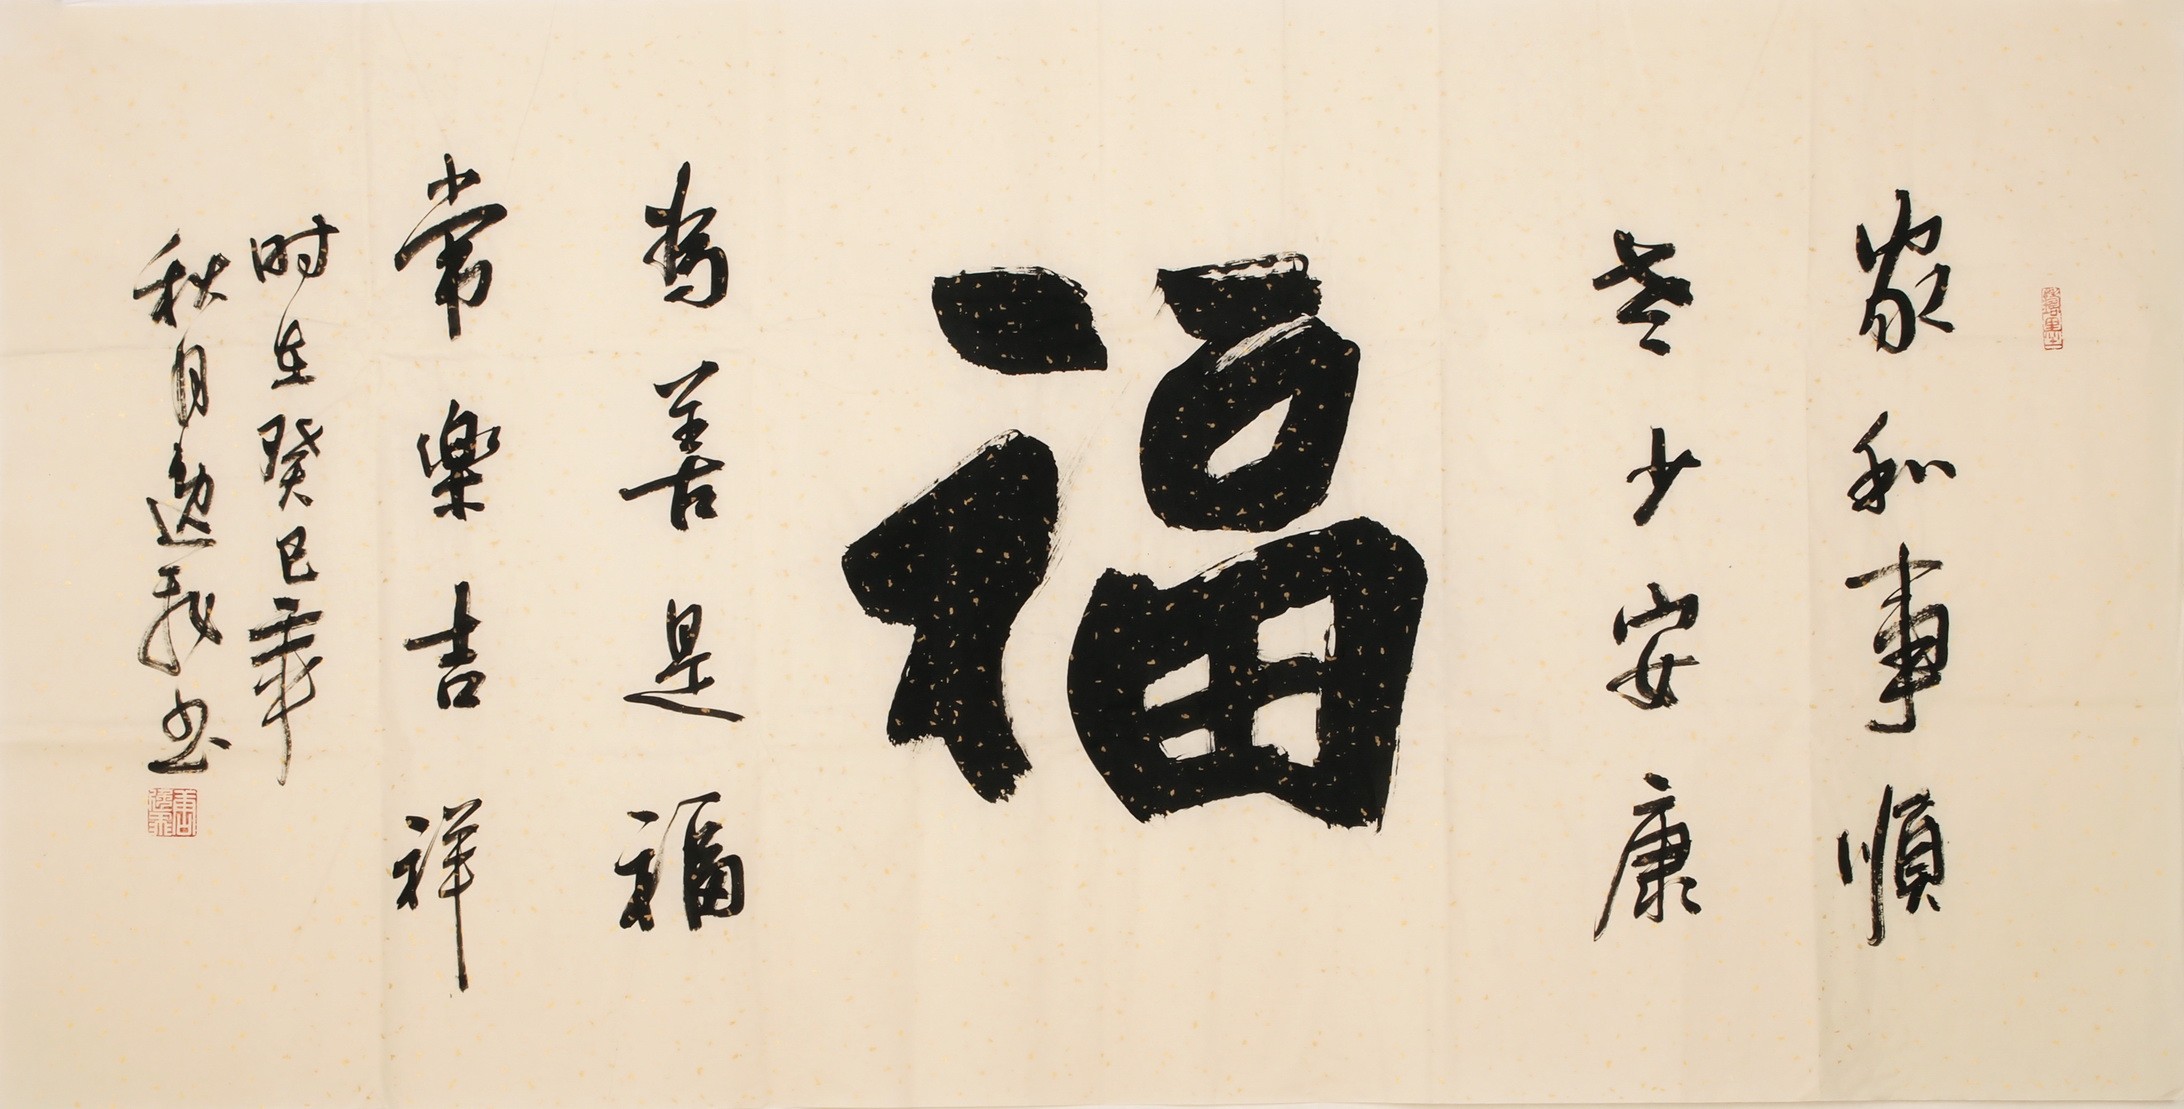 家和事順
老少安康
福
為善是福
常樂吉祥
时在癸巳年
秋月逸我书